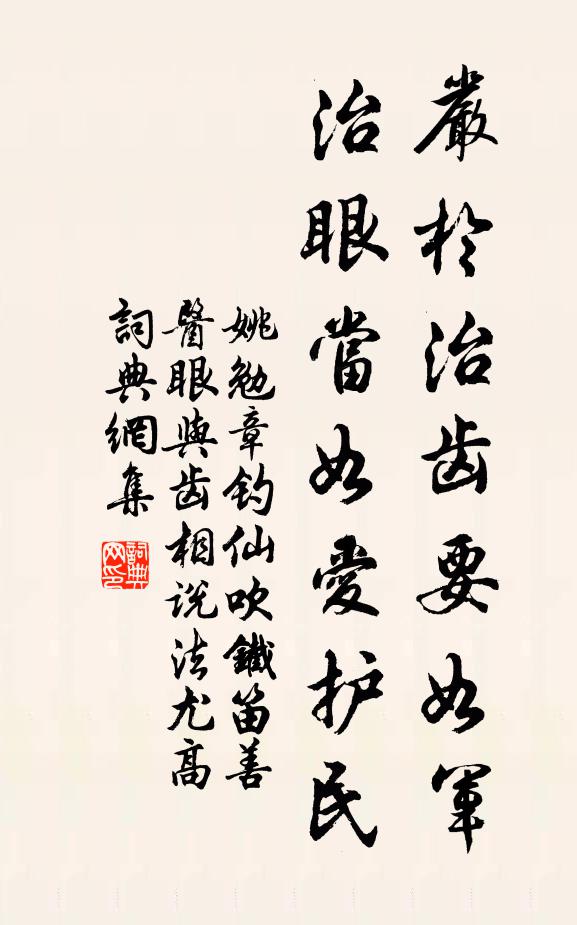 嚴於治齒要如軍
治眼當如愛护民
姚勉章钓仙吹鐵笛善
醫眼與齒相说法尤高
詞典網集
詞典
网印